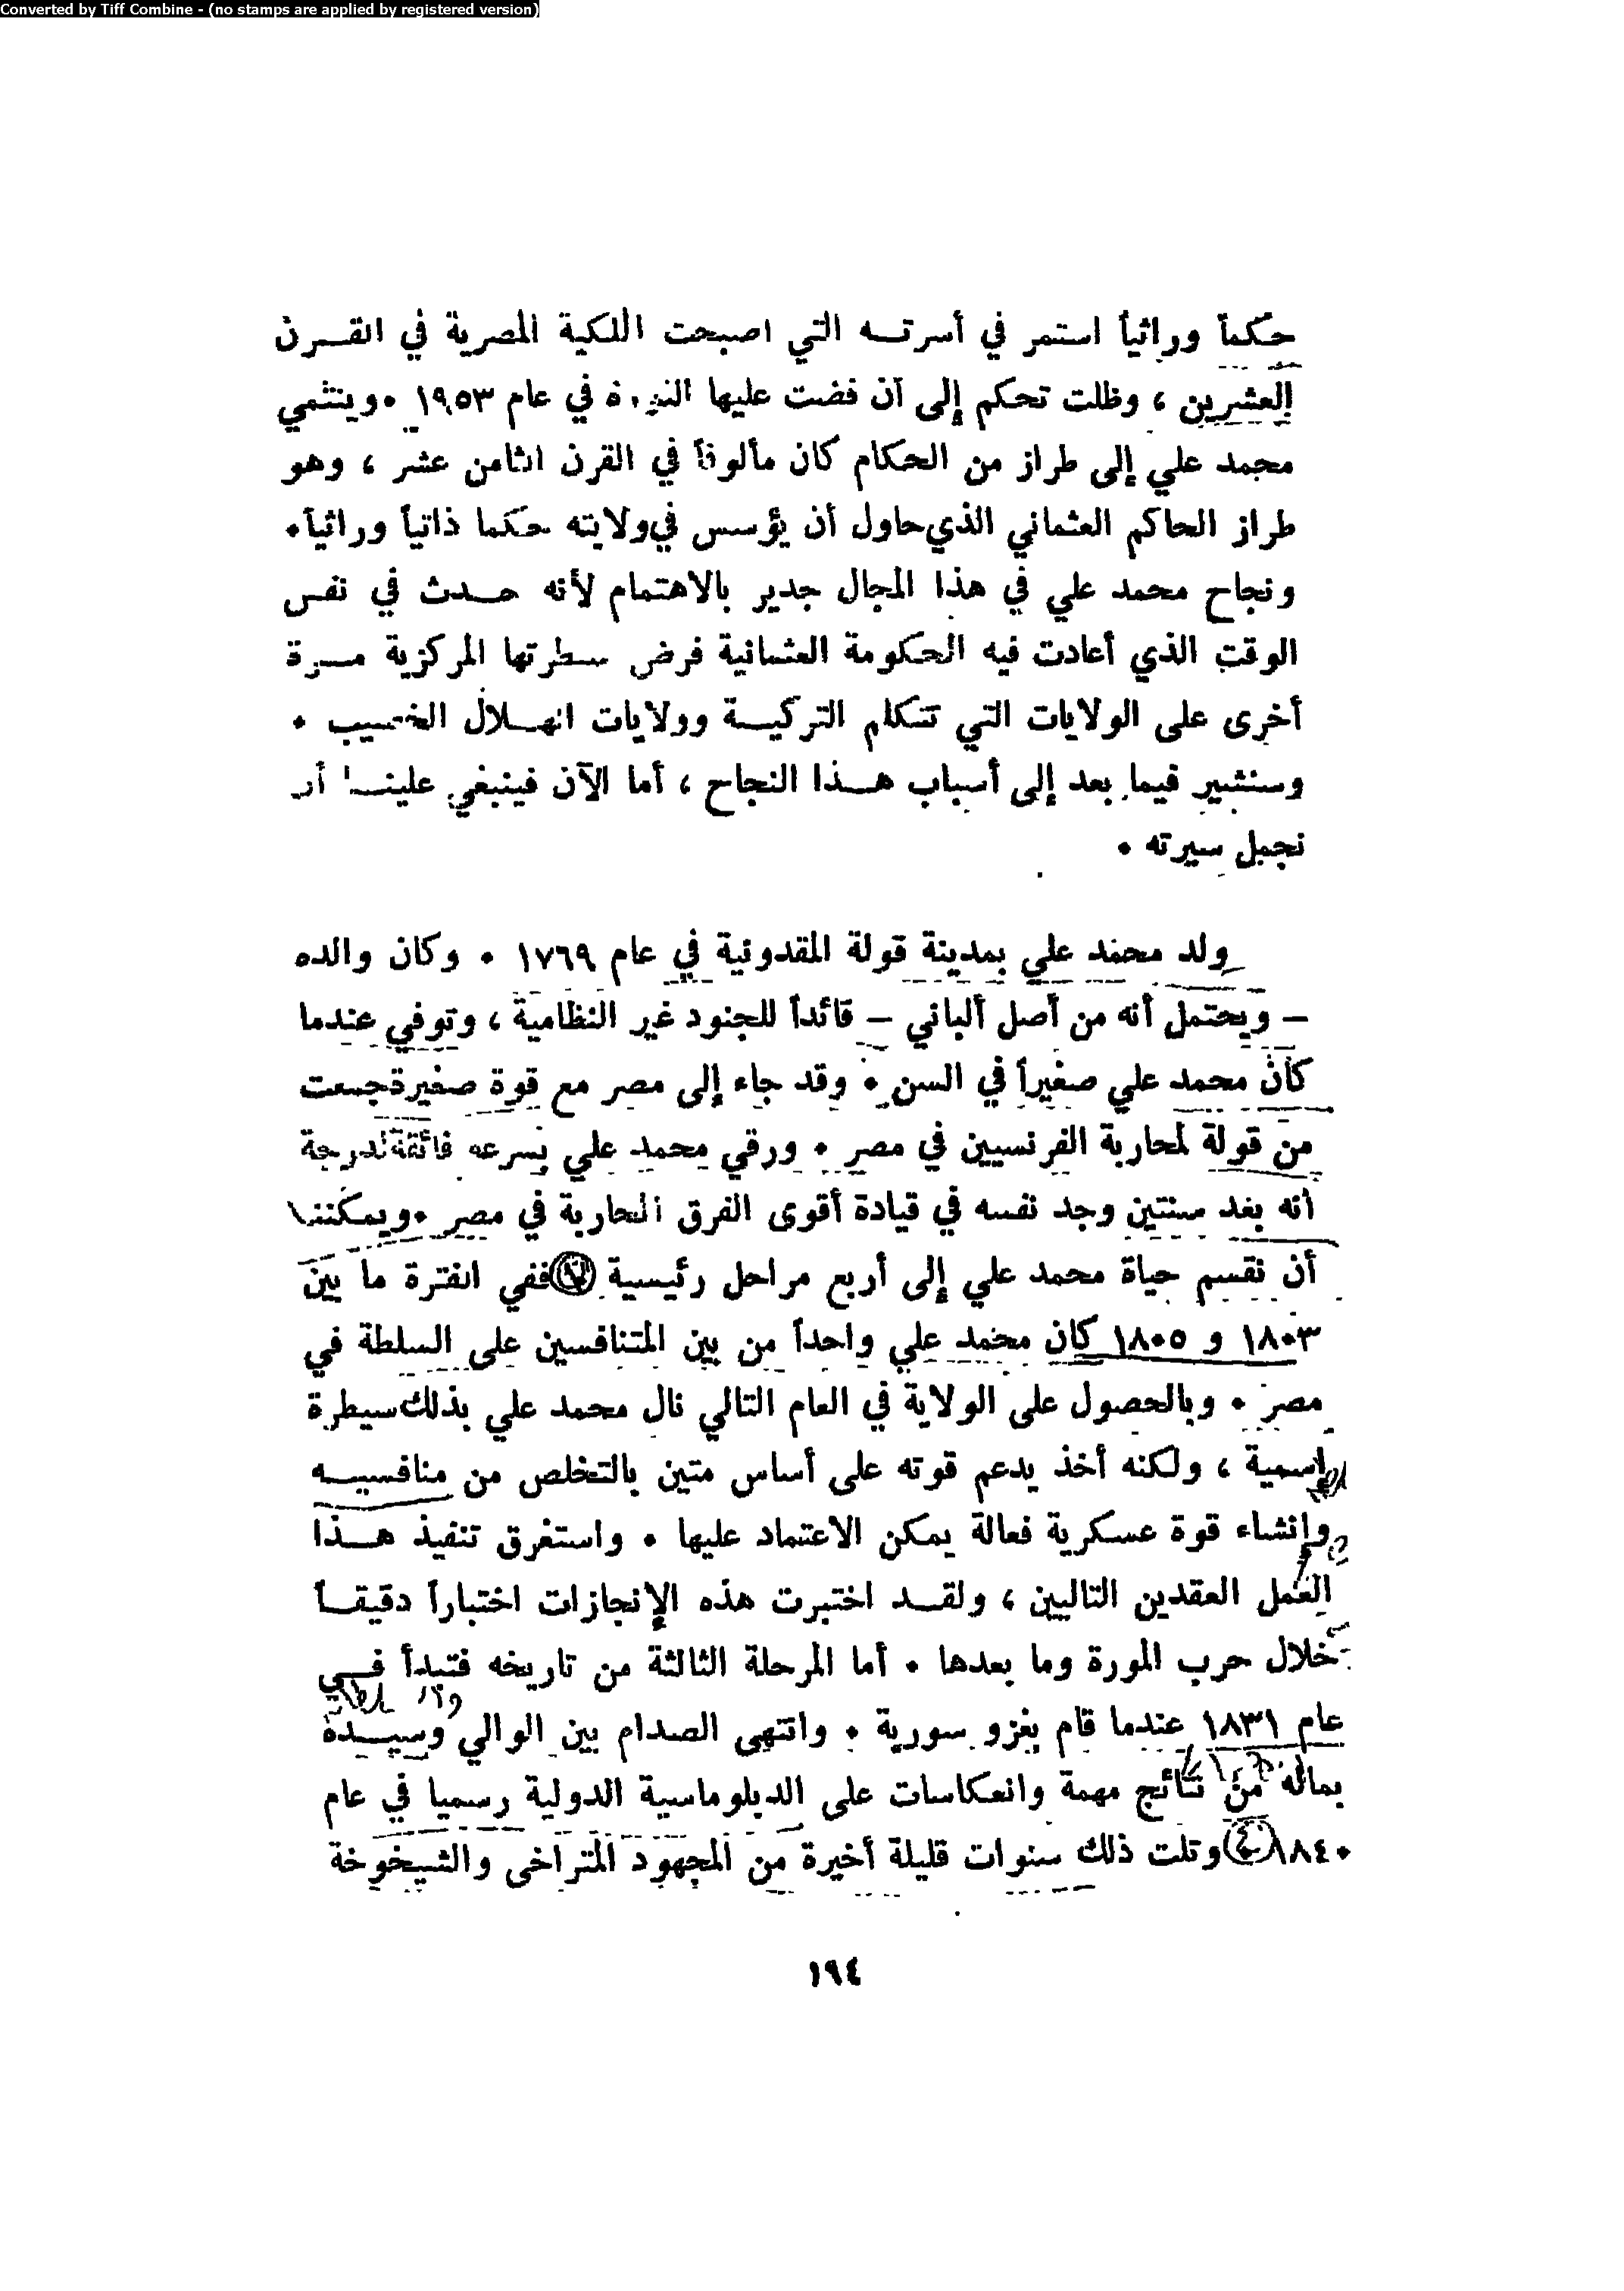 Converted by Tiff Combine - (no stamps are applied by registered version)
حكماً وراثياً استمر في أسرته التي اصبحت الملكية المصرية في القرن
العشرين ، وظلت تحكم إلى أن قضت عليها الثورة في عام ١٩٥٣ . وينتمي
محمد علي إلى طراز من الحكام كان مألوفاً في القرن الثامن عشر ، وهو
طراز الحاكم العثماني الذي حاول أن يؤسس في ولايته حكما ذاتياً وراثياً .
ونجاح محمد علي في هذا المجال جدير بالاهتمام لأنه حدث في نفس
الوقت الذي أعادت فيه الحكومة العثمانية فرض سطرتها المركزية مرة
أخرى على الولايات التي تتكلم التركية وولايات الهلال الخصيب .
وسنشير فيما بعد إلى أسباب هذا النجاح ، أما الآن فينبغي علينا أن
نجمل سيرته .
ولد محمد علي بمدينة قولة المقدونية في عام ١٧٦٩ . وكان والده
– ويحتمل أنه من أصل ألباني – قائداً للجنود غير النظامية ، وتوفي عندما
كان محمد علي صغيراً في السن . وقد جاء إلى مصر مع قوة صغيرة جمعت
من قولة لمحاربة الفرنسيين في مصر . ورقي محمد علي بسرعه فائقة لدرجة
أنه بعد سنتين وجد نفسه في قيادة أقوى الفرق المحاربة في مصر . ويمكننا
أن نقسم حياة محمد علي إلى أربع مراحل رئيسية ففي الفترة ما بين
١٨٠٣ و ١٨٠٥ كان محمد علي واحداً من بين المتنافسين على السلطة في
مصر . وبالحصول على الولاية في العام التالي نال محمد علي بذلك سيطرة
إسمية ، ولكنه أخذ يدعم قوته على أساس متين بالتخلص من منافسيه
وإنشاء قوة عسكرية فعالة يمكن الاعتماد عليها . واستغرق تنفيذ هذا
العمل العقدين التاليين ، ولقد اختبرت هذه الإنجازات اختباراً دقيقاً
خلال حرب المورة وما بعدها . أما المرحلة الثالثة من تاريخه فتبدأ في
عام ١٨٣١ عندما قام بغزو سورية . وانتهى الصدام بين الوالي وسيدة
بماله من نتائج مهمة وانعكاسات على الدبلوماسية الدولية رسميا في عام
١٨٤٠ وتلت ذلك سنوات قليلة أخيرة من المجهود المتراخى والشيخوخة
١٩٤